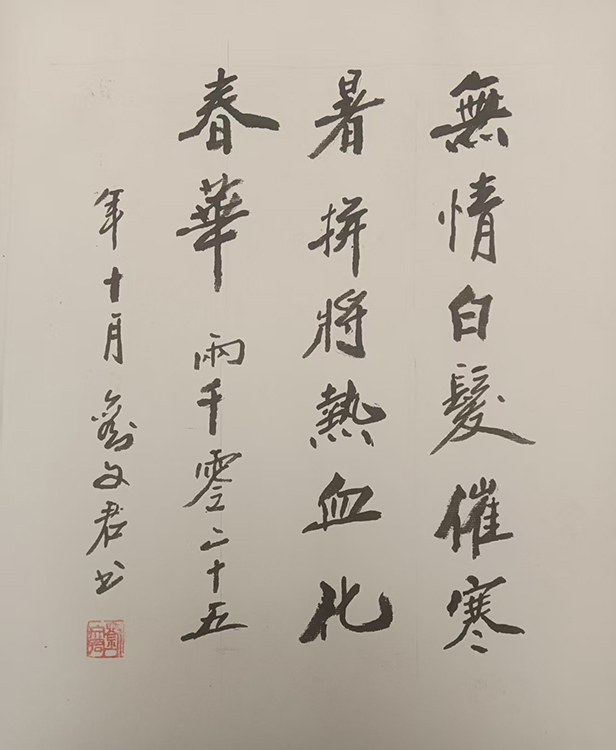 無情白髮催寒
暑拼將熱血化
春華 兩千零二十五
年十月 劉文君書